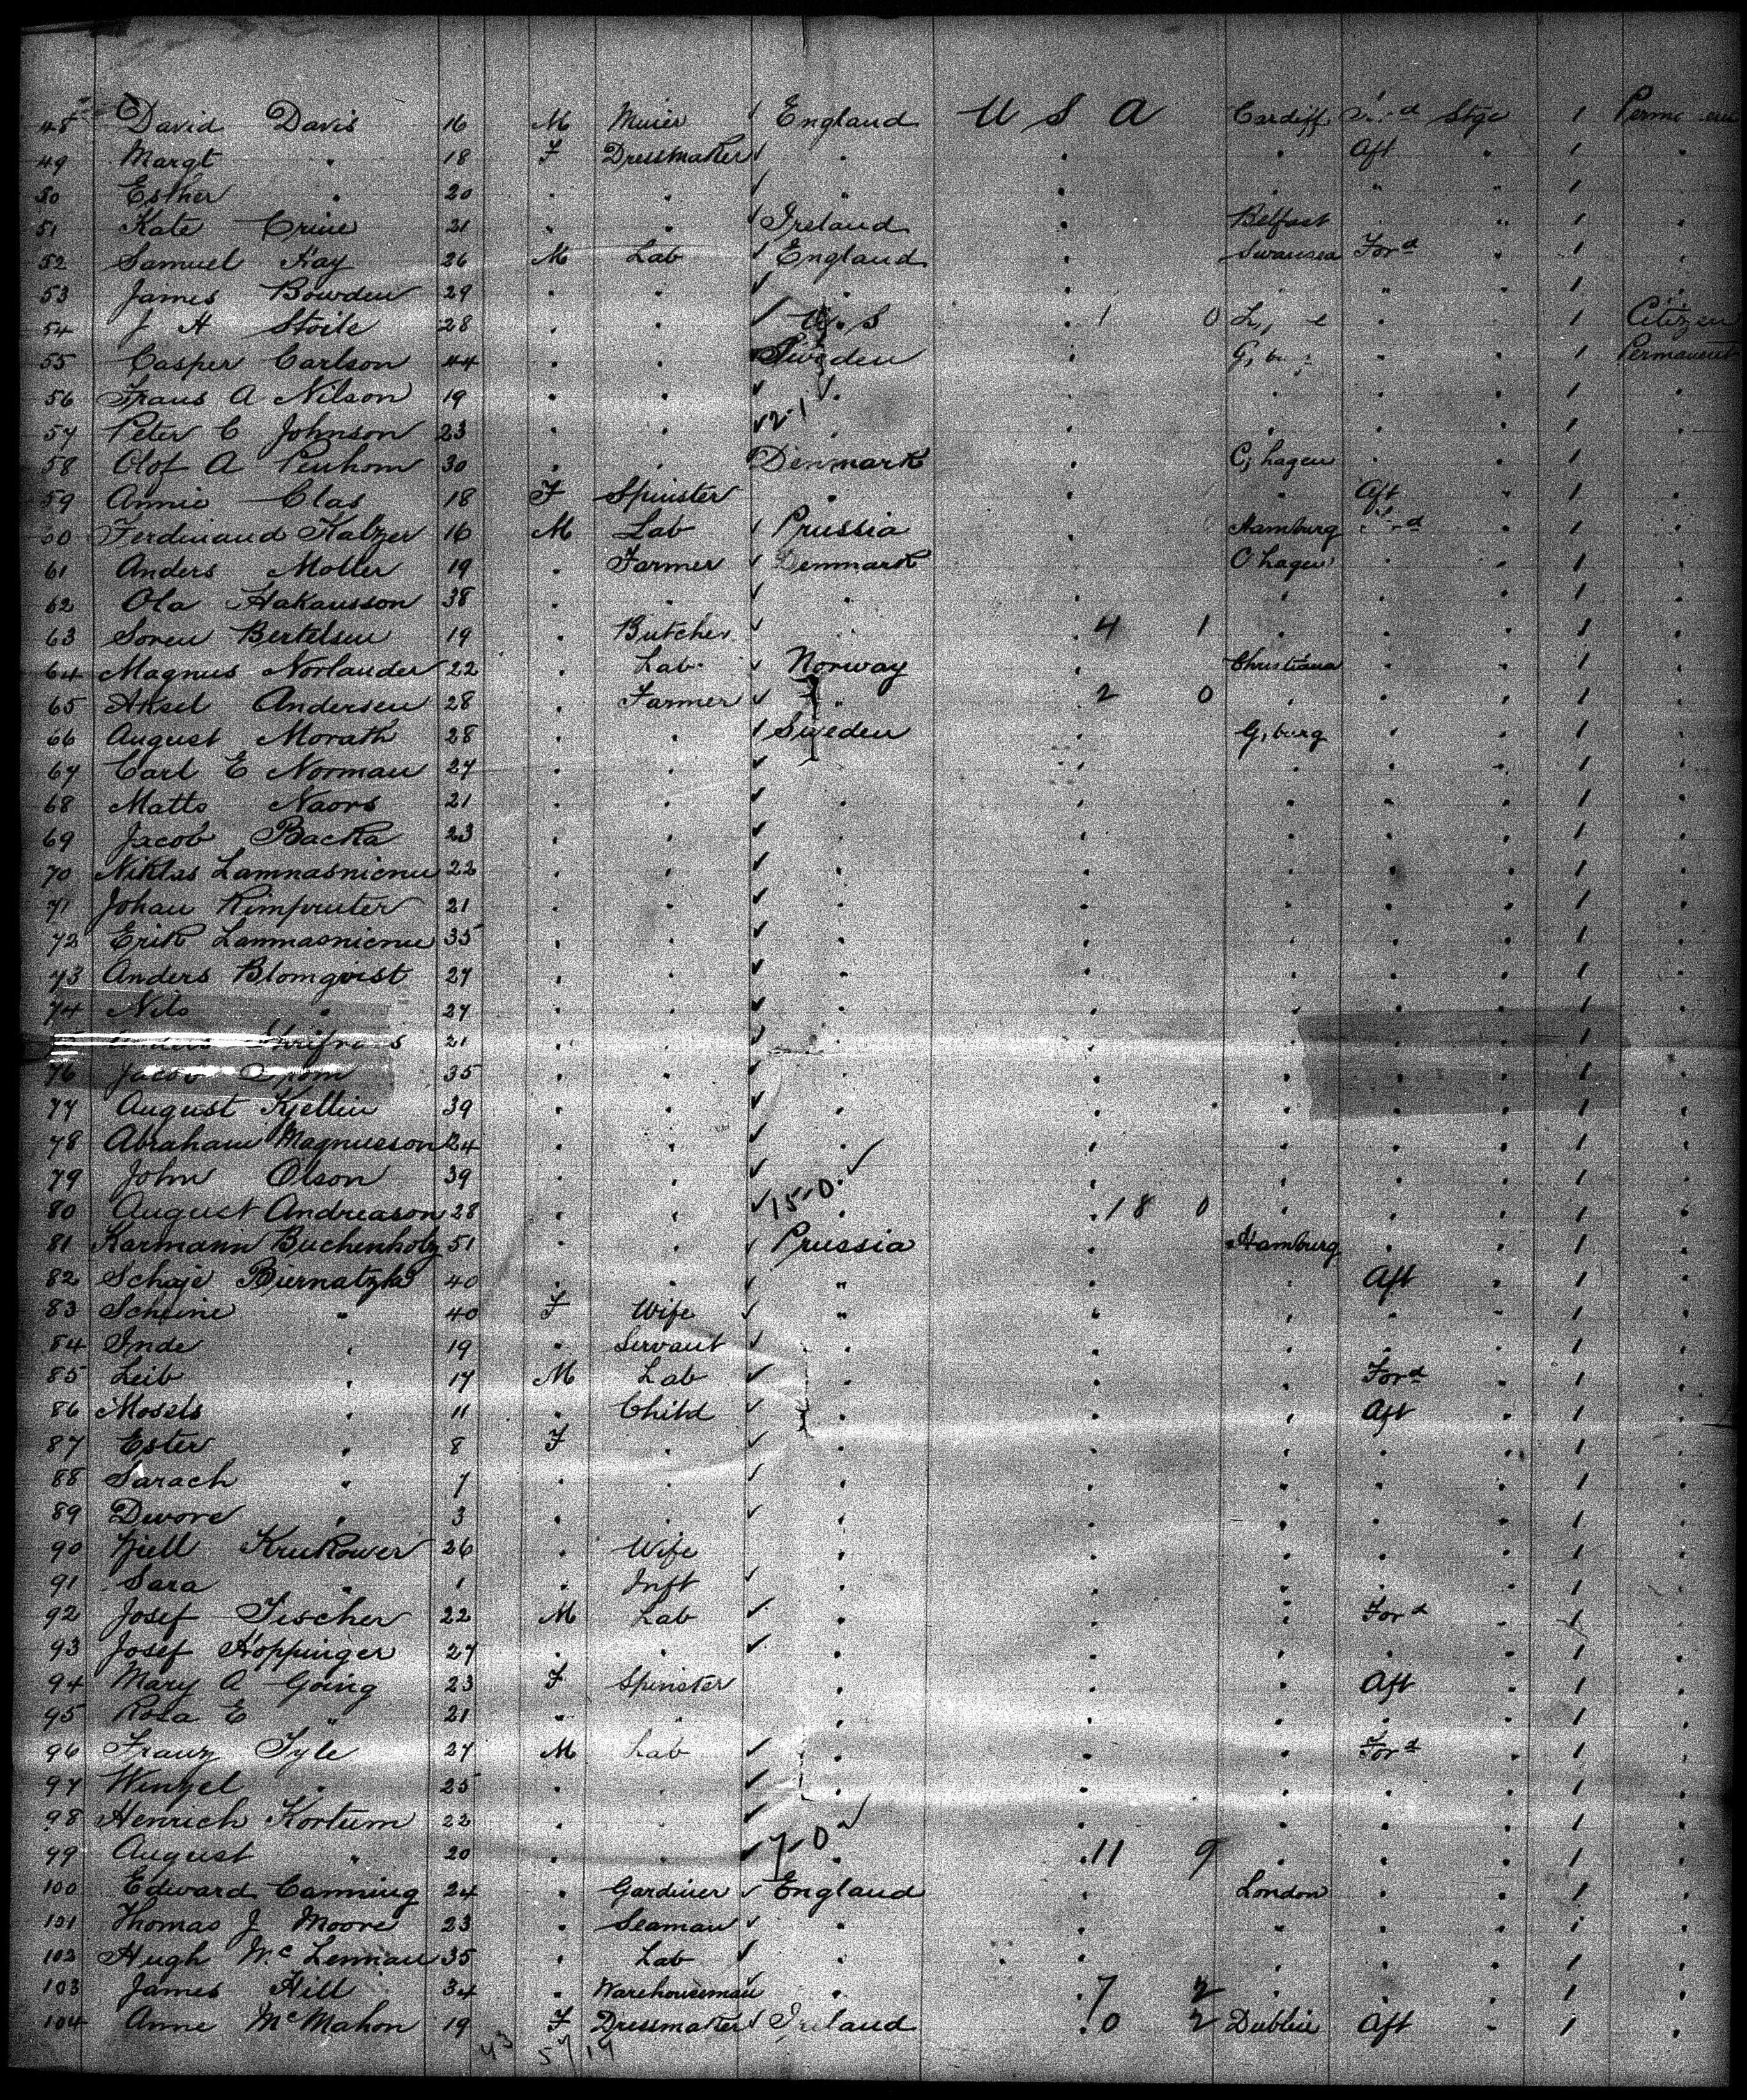 48 David Davis 16 M Miner England U S A Cardiff Stge 1
49 Margt " 18 F Dressmaker " " " Aft " 1 "
50 Esther " 20 " " " " " " " 1 "
51 Kate 21 " " Ireland " Belfast " " 1 "
52 Samuel Kay 26 M Lab England " Swansea Ford " 1 "
53 James Bowden 29 " " " " " " " 1 "
54 J H Stoile 28 " " U.S " 1 0 " " 1 Citizen
55 Casper Carlson 44 " " Sweden " " " 1 Permanent
56 Frans A Nilson 19 " " " " " " " 1 "
57 Peter C Johnson 23 " " 2-1 " " " " " 1 "
58 Olof A 30 " " Denmark " C,hagen " " 1 "
59 Annie Clas 18 F Spinster " " " Aft " 1 "
60 Ferdinand Kalzer 16 M Lab Prussia " Hamburg " 1 "
61 Anders Moller 19 " Farmer Denmark " C hagen " " 1 "
62 Ola Hakansson 38 " " " " " " " 1 "
63 Soren Bertelsen 19 " Butcher " " 4 1 " " " 1 "
64 Magnus Norlander 22 " Lab Norway " Christiana " " 1 "
65 Aksel Andersen 28 " Farmer " " 2 0 " " " 1 "
66 August Morath 28 " " Sweden " G,burg " " 1 "
67 Carl E Norman 27 " " " " " " " 1 "
68 Matts Naors 21 " " " " " " " 1 "
69 Jacob Backa 23 " " " " " " " 1 "
70 Niklas 22 " " " " " " " 1 "
71 Johan 21 " " " " " " " 1 "
72 Erik 35 " " " " " " " 1 "
73 Anders Blomqvist 27 " " " " " " " 1 "
74 Nils " 27 " " " " " " " 1 "
21 " " " " " " " 1 "
76 Jacob 35 " " " " " " " 1 "
77 August Kjellin 39 " " " " " " " 1 "
78 Abraham Magnusson 24 " " " " " " " 1 "
79 John Olson 39 " " " " " " " 1 "
80 August Andreason 28 " " 15-0 " " 18 0 " " " 1 "
81 Karmann Buchenholz 51 " " Prussia " Hamburg " " 1 "
82 Schaje Biernatzki 40 " " " " " Aft " 1 "
83 Scheine " 40 F Wife " " " " " 1 "
84 Inde " 19 " Servant " " " " " 1 "
85 Leib " 17 M Lab " " " Ford " 1 "
86 " 11 " Child " " " Aft " 1 "
87 Ester " 8 F " " " " " " 1 "
88 Sarach " 7 " " " " " " " 1 "
89 Dwore " 3 " " " " " " " 1 "
90 Krukower 26 " Wife " " " " " 1 "
91 Sara " 1 " Inft " " " " " 1 "
92 Josef Fischer 22 M Lab " " " Ford " 1 "
93 Josef Hoppinger 27 " " " " " " " 1 "
94 Mary A Going 23 F Spinster " " " Aft " 1 "
95 Rosa E " 21 " " " " " " " 1 "
96 Franz Tyle 27 M Lab " " " Ford " 1 "
97 Wenzel " 25 " " " " " " " 1 "
98 Henrich Kortum 22 " " " " " " " 1 "
99 August " 20 " " 7-0 " " 11 9 " " " 1 "
100 Edward Canning 24 " Gardiner England " London " " 1 "
101 Thomas J Moore 23 " Seaman " " " " " 1 "
102 Hugh McLennan 35 " Lab " " " " " 1 "
103 James Hill 34 " Warehouseman " " 7 2 " " " 1 "
104 Anne McMahon 19 F Dressmaker Ireland " 0 2 Dublin Aft " 1 "
43 57/19